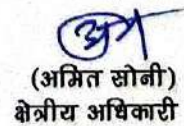 (अमित सोनी)
क्षेत्रीय अधिकारी